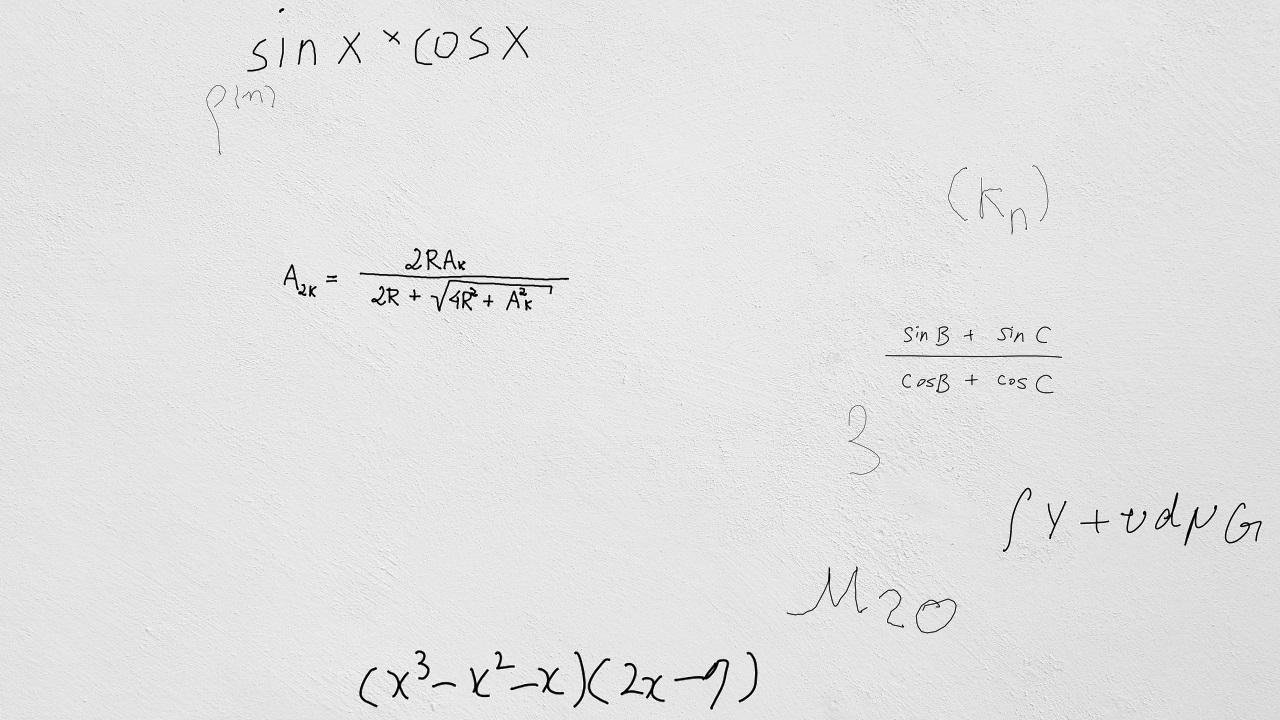 sin x × cos x
ρ^{(n)}
(k_n)
A_{2K} = \frac{2RA_K}{2R + \sqrt{4R^2 + A_K^2}}
\frac{sin B + sin C}{cos B + cos C}
3
∫ Y + v d μ G
M_{20}
(x^3 - x^2 - x)(2x - 9)